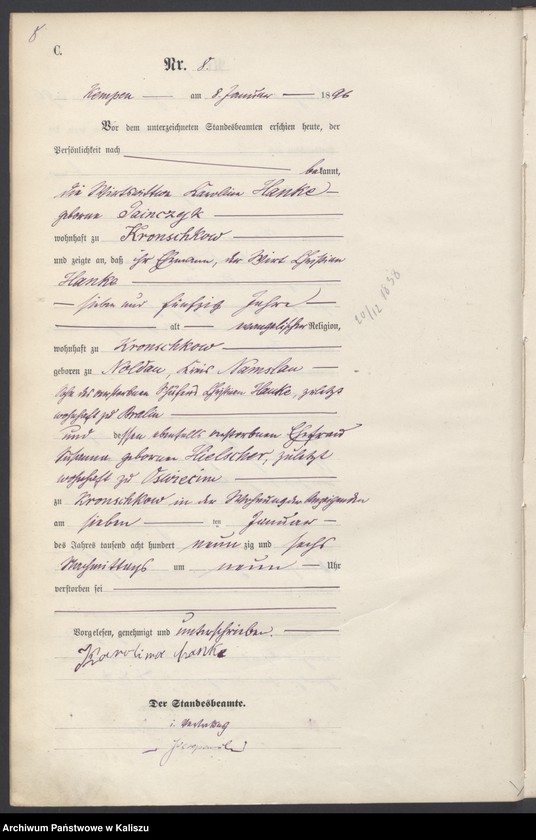 8
C.
Nr. 8.
Kempen am 8. Januar 1896
Vor dem unterzeichneten Standesbeamten erschien heute, der
Persönlichkeit nach
bekannt,
die Wirtswittwe Karoline Hanke
geborne
wohnhaft zu Kronschkow
und zeigte an, daß ihr Ehemann, der Wirt Christian
Hanke
sieben und fünfzig Jahre
alt evangelischer Religion,
wohnhaft zu Kronschkow
geboren zu Noldau, Kreis Namslau
Sohn des verstorbenen Schäfers Christian Hanke, zuletzt
wohnhaft zu
und dessen ebenfalls verstorbenen Ehefrau
Susanna geborenen Hielscher, zuletzt
wohnhaft zu
zu Kronschkow in der Wohnung der Anzeigenden
am sieben ten Januar
des Jahres tausend acht hundert neunzig und sechs
Nachmittags um neun Uhr
verstorben sei
Vorgelesen, genehmigt und unterschrieben.
Karolina Hanke
Der Standesbeamte.
i. Vertretung
Archiwum Państwowe w Kaliszu